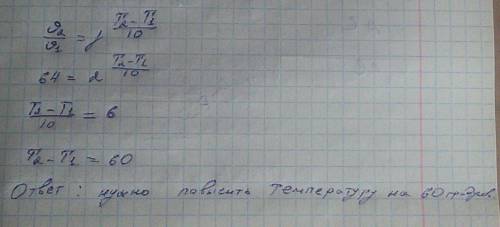 ϑ₂/ϑ₁ = γ^((T₂ − T₁)/10)
64 = 2^((T₂ − T₁)/10)
(T₂ − T₁)/10 = 6
T₂ − T₁ = 60
Ответ: нужно повысить температуру на 60 градусов